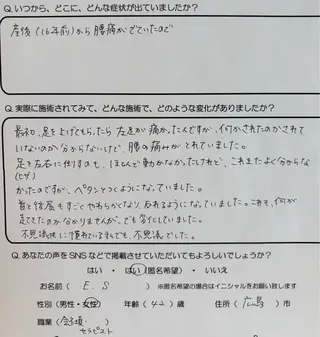 Q.いつから、どこに、どんな症状が出ていましたか?
産後(16年前)から腰痛がでていたので
Q.実際に施術されてみて、どんな施術で、どのような変化がありましたか?
最初、足を上げてもらったら左足が痛かったんですが、何かされたのかされて
いないのか分からないけど、腰の痛みがとれていました。
足を左右に倒すのも、ほとんど動かなかったけれど、これまたよく分からな
(ヒザ)
かったのですが、ペタンとつくようになっていました。
首と背屈もすごくやわらかくなり、反れるようになっていました。これも、何が
起きたのか分かりませんが、でも変化していました。
不思議体に慣れている私でも、不思議でした。
Q.あなたの声をSNSなどで掲載させていただいてもよろしいでしょうか?
はい ・ はい(匿名希望) ・ いいえ
お名前( E.S ) ※匿名希望の場合はイニシャルをお願い致します
性別(男性・女性) 年齢(42)歳 住所(広島)市
職業(
セラピスト